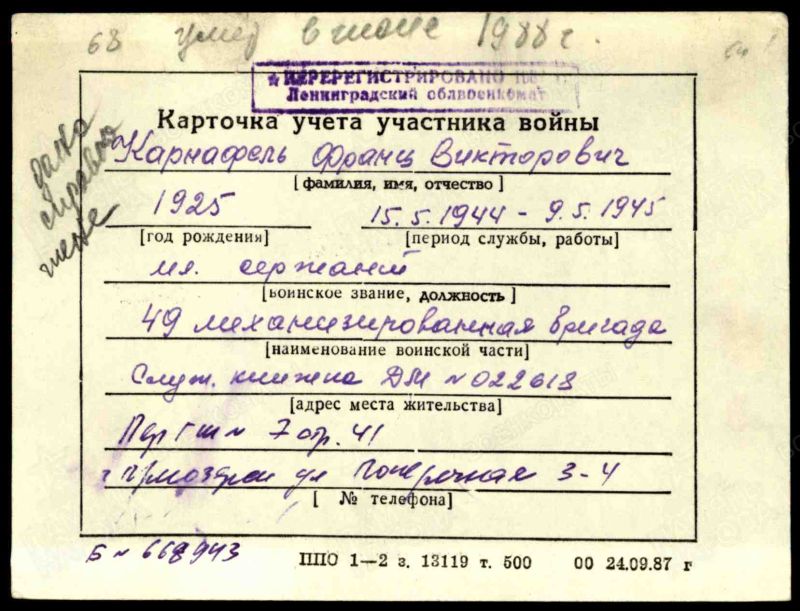 68 умер в июне 1988 г.
64
ПЕРЕРЕГИСТРИРОВАНО
Ленинградский облвоенкомат
дана справка жене
Карточка учета участника войны
Карнафель Франц Викторович
[фамилия, имя, отчество]
1925 15.5.1944 - 9.5.1945
[год рождения] [период службы, работы]
мл. сержант
[воинское звание, должность]
49 механизированная бригада
[наименование воинской части]
Служ. книжка ДМ № 022618
[адрес места жительства]
Пер ГШ № 7 стр. 41
ул 3-4
[ № телефона]
Б № 668943
ППО 1—2 з. 13119 т. 500 00 24.09.87 г